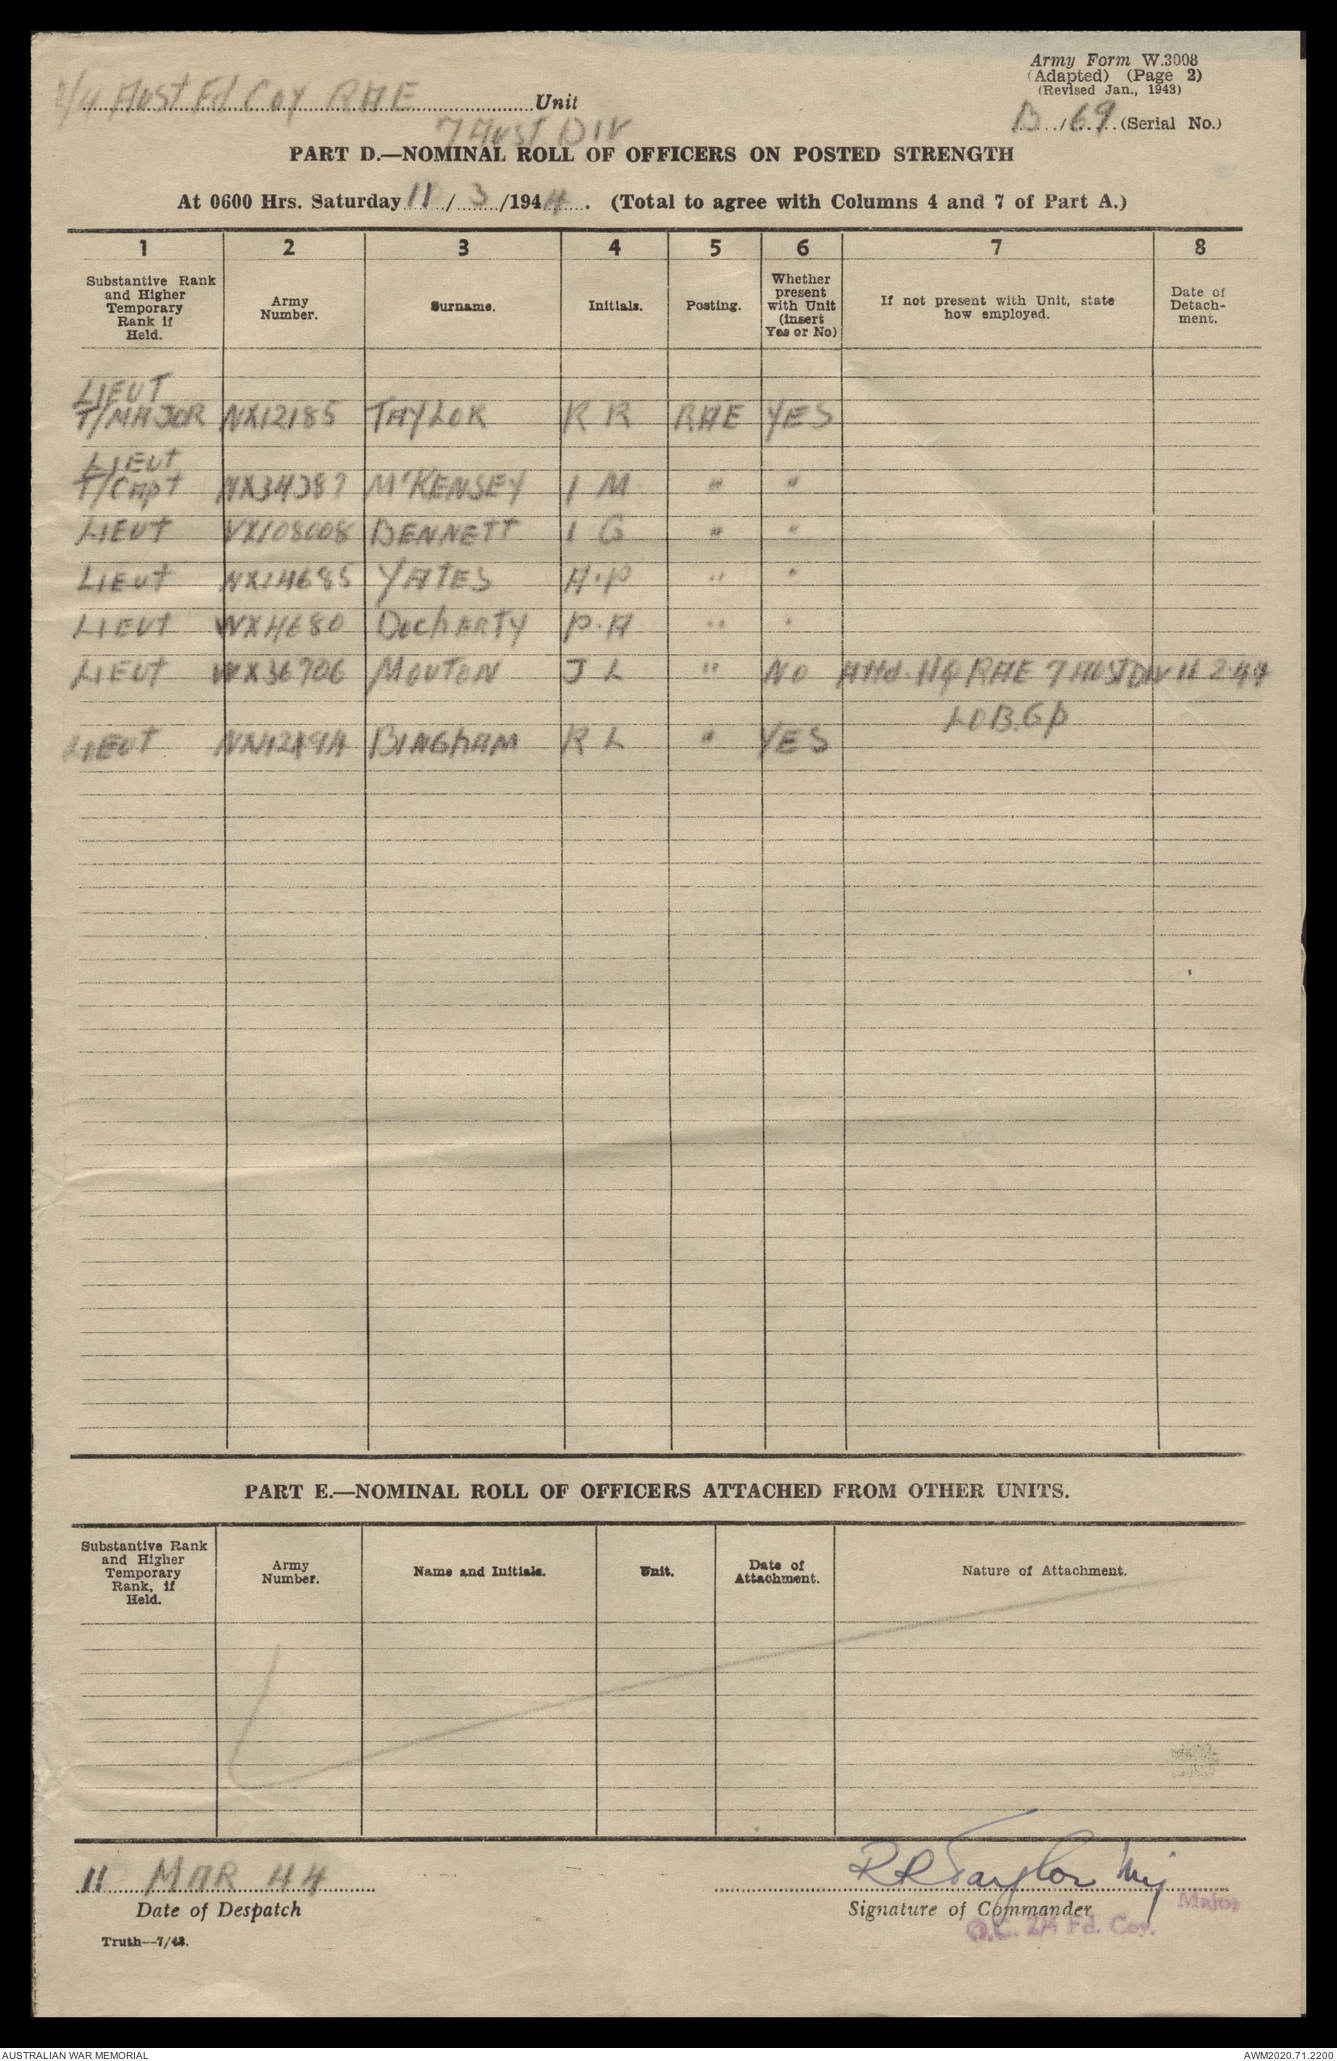 Army Form W.3008
(Adapted) (Page 2)
(Revised Jan., 1943)
2/4 Aust Fd Coy RAE Unit
7 Aust Div
B / 69 (Serial No.)
PART D.—NOMINAL ROLL OF OFFICERS ON POSTED STRENGTH
At 0600 Hrs. Saturday 11 / 3 /1944. (Total to agree with Columns 4 and 7 of Part A.)
1 2 3 4 5 6 7 8
Substantive Rank and Higher Temporary Rank if Held.
Army Number.
Surname.
Initials.
Posting.
Whether present with Unit (insert Yes or No)
If not present with Unit, state how employed.
Date of Detachment.
LIEUT
T/MAJOR NX12185 TAYLOR R R RAE YES
LIEUT
T/Capt NX34387 McKENSEY I M " "
LIEUT VX108008 BENNETT I G " "
LIEUT NX14685 YATES A.P " "
LIEUT WX4680 DOCHARTY P.A " "
LIEUT WX36706 MOUTON J L " NO Attd. HQ RAE 7 AUST DIV 11 2 44
LOB.Gp
LIEUT BINGHAM R L " YES
PART E.—NOMINAL ROLL OF OFFICERS ATTACHED FROM OTHER UNITS.
Substantive Rank and Higher Temporary Rank, if Held.
Army Number.
Name and Initials.
Unit.
Date of Attachment.
Nature of Attachment.
11 MAR 44
Date of Despatch
RRTaylor Maj
Signature of Commander
Major
O.C. 2/4 Fd. Coy.
Truth—7/43.
AUSTRALIAN WAR MEMORIAL
AWM2020.71.2200